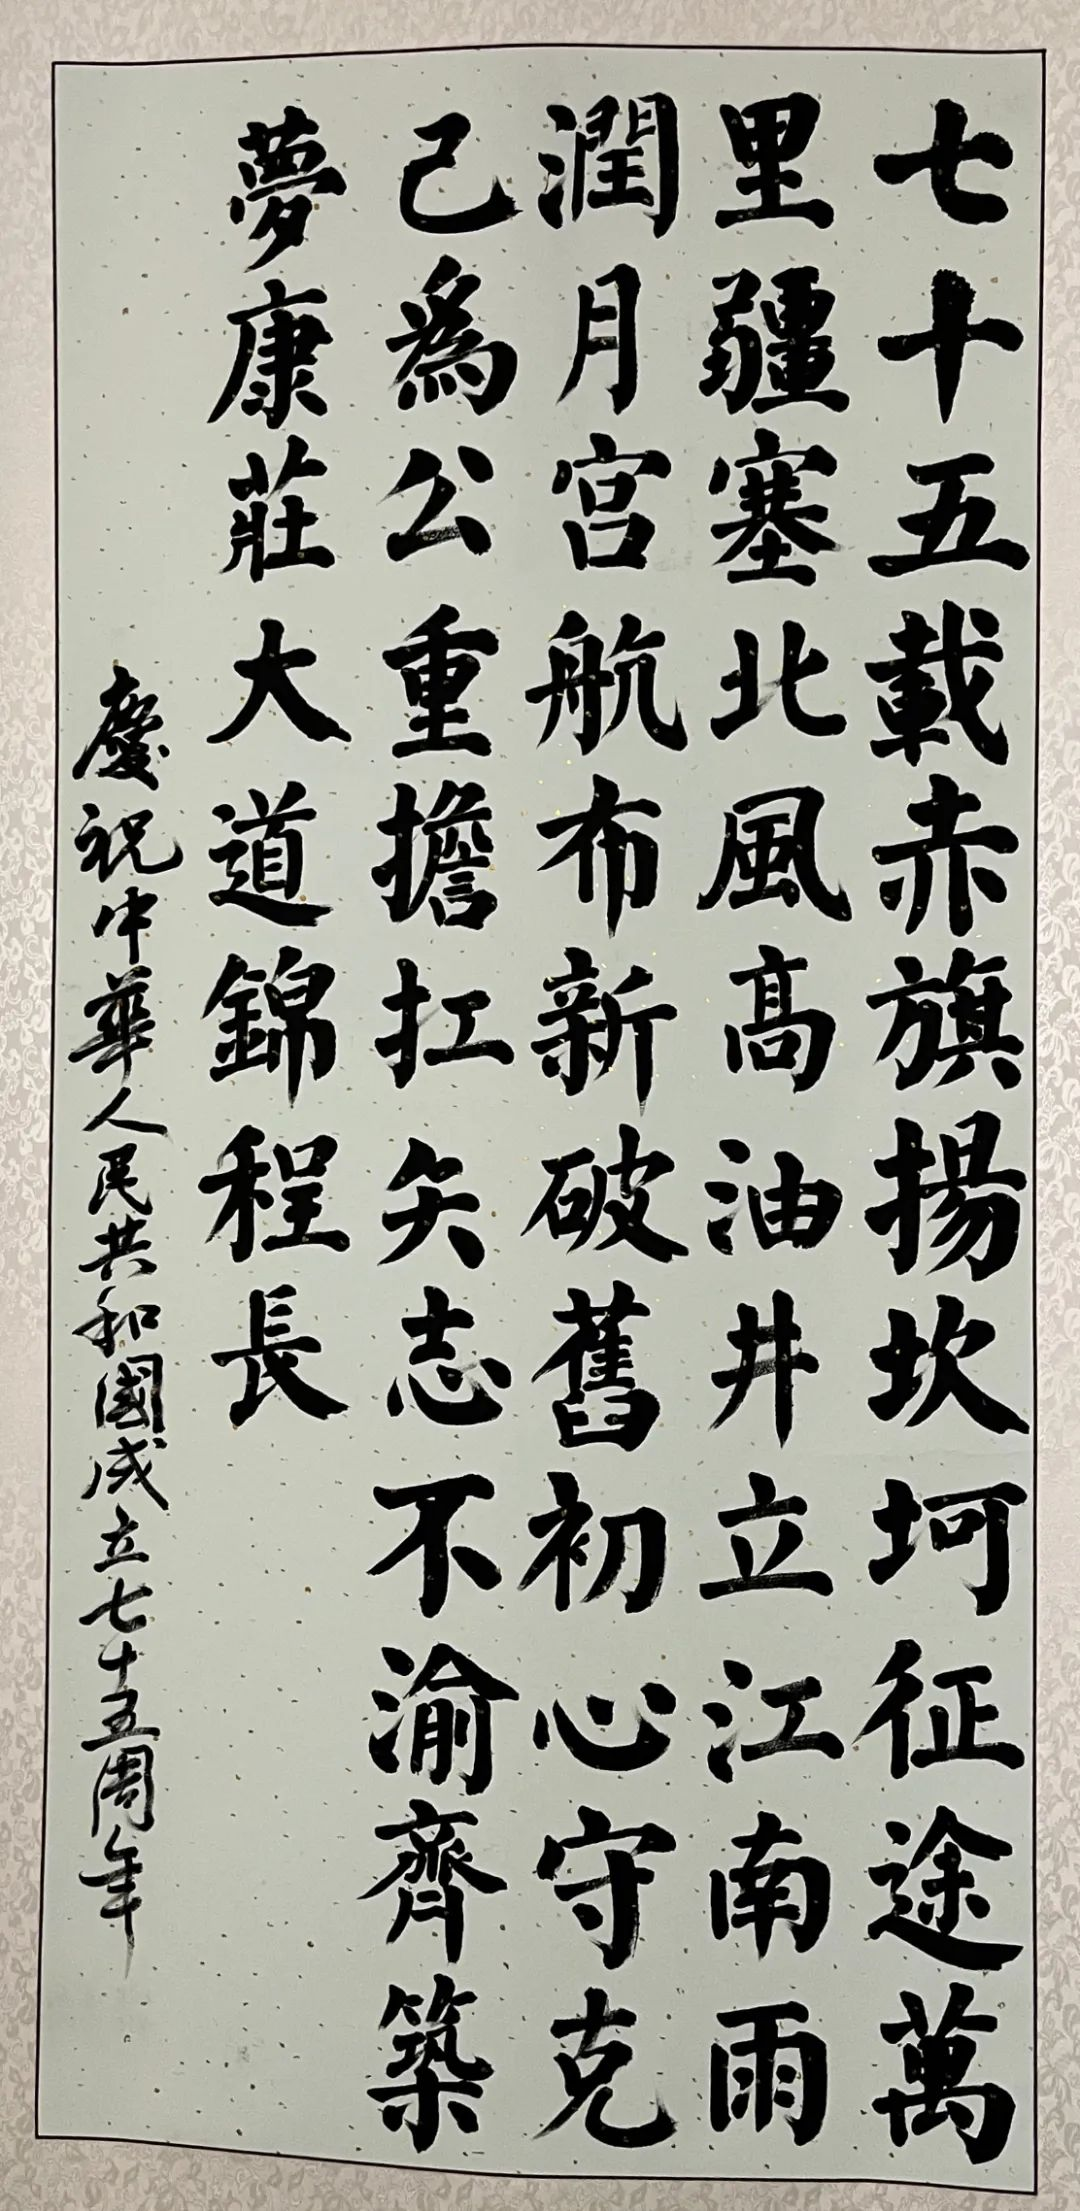 七十五載赤旗揚坎坷征途萬
里疆塞北風高油井立江南雨
潤月宫航布新破舊初心守克
己為公重擔扛矢志不渝齊築
夢康莊大道錦程長
慶祝中華人民共和國成立七十五周年